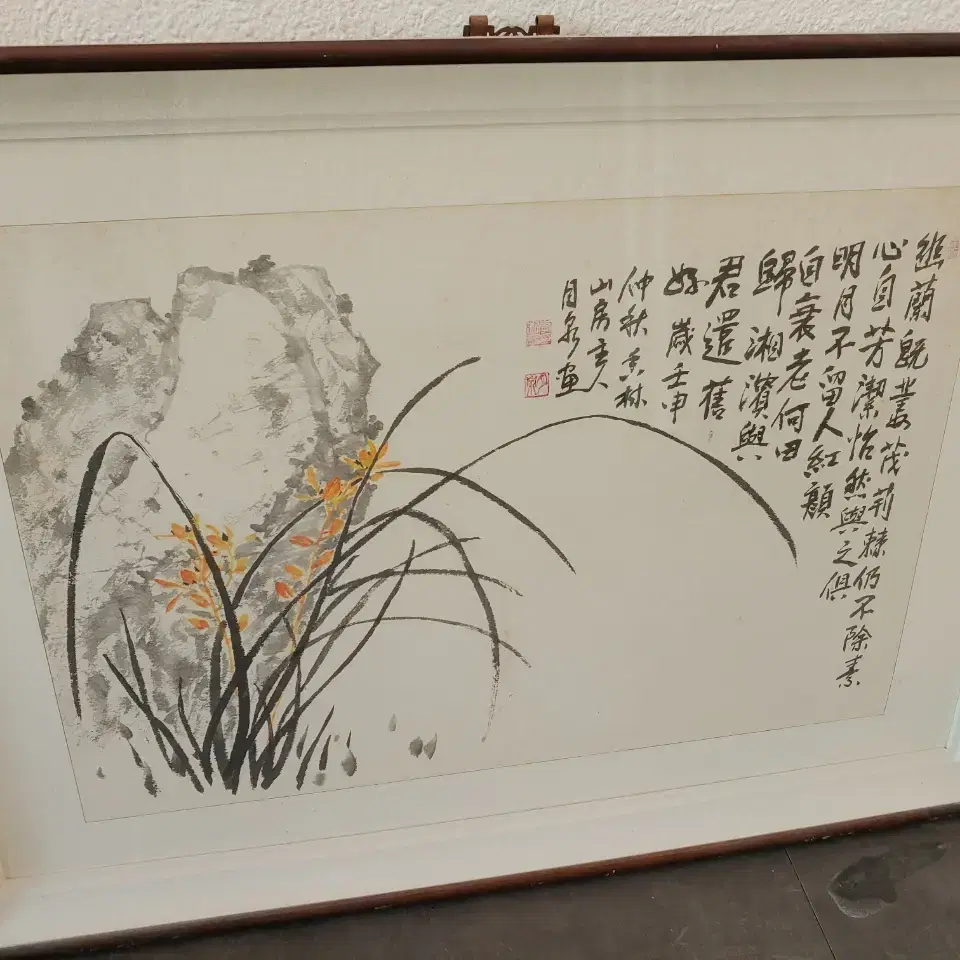 幽蘭既叢茂荊棘仍不除素
心自芳潔怡然與之俱
明月不留人紅顏
自衰老何由
歸湘濱與
君還舊
好 歲壬申
仲秋林
山房主人
月泉畫